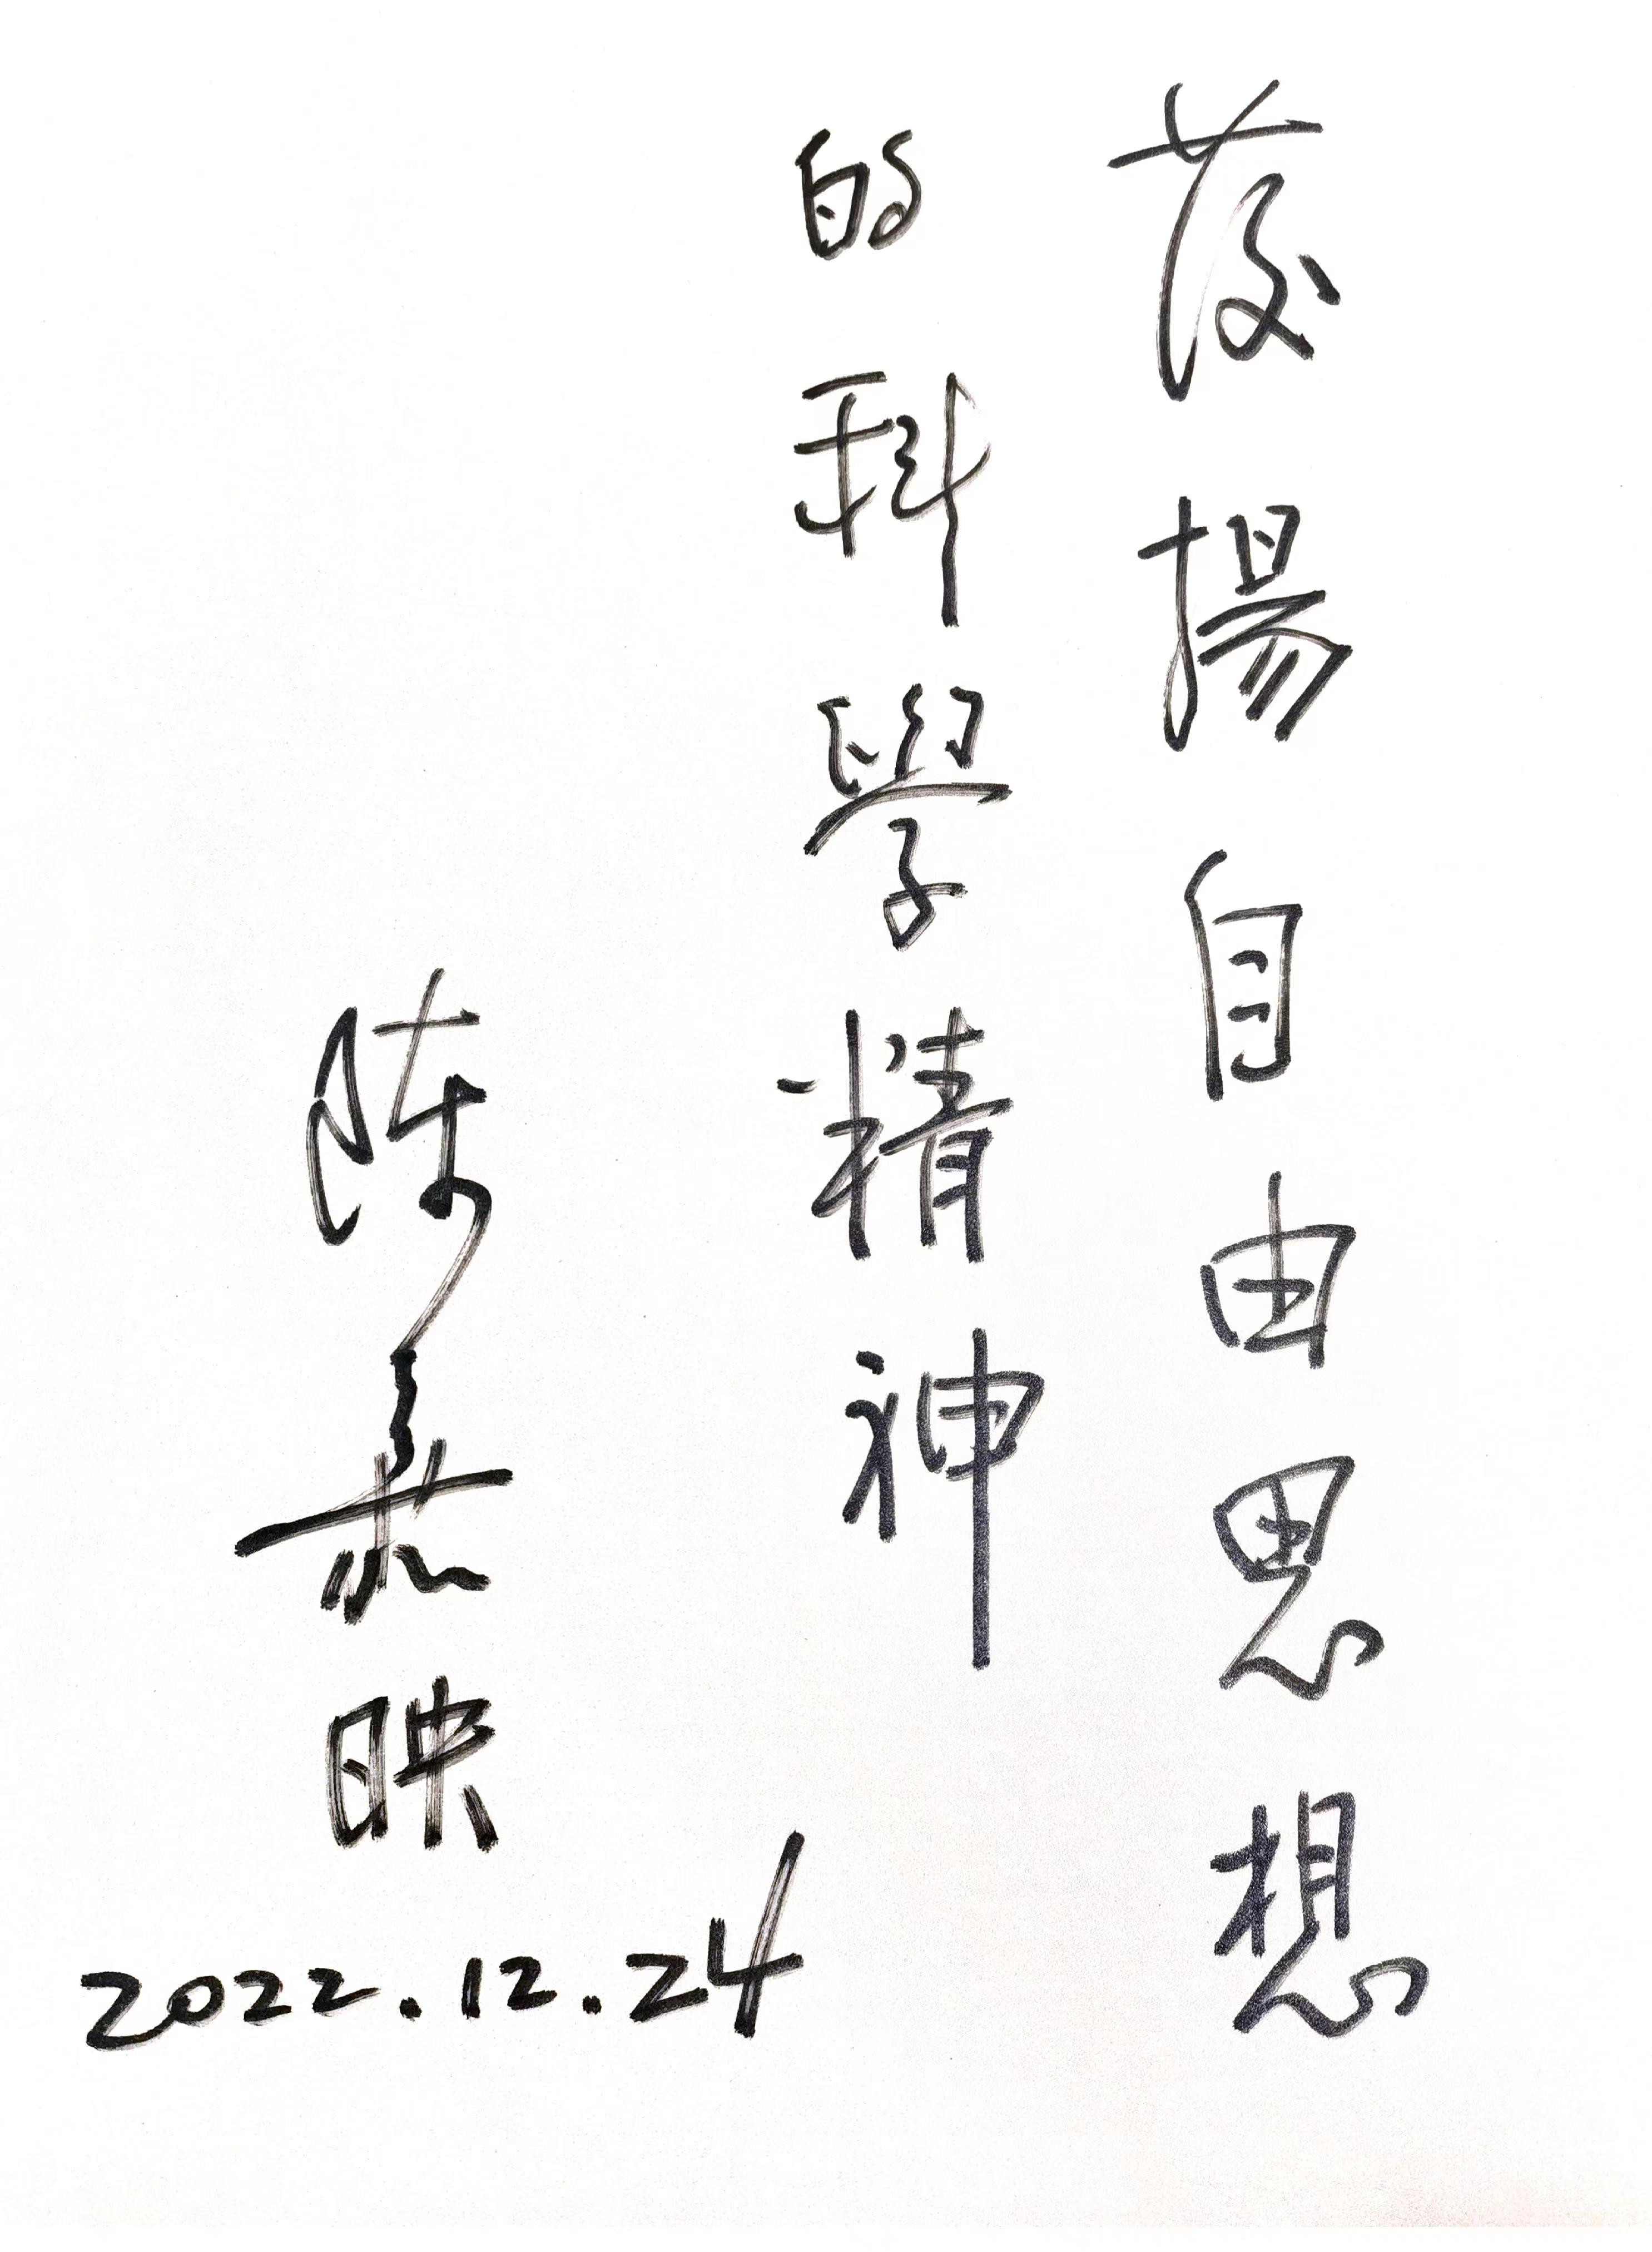 发揚自由思想
的科學精神
陈嘉映
2022.12.24